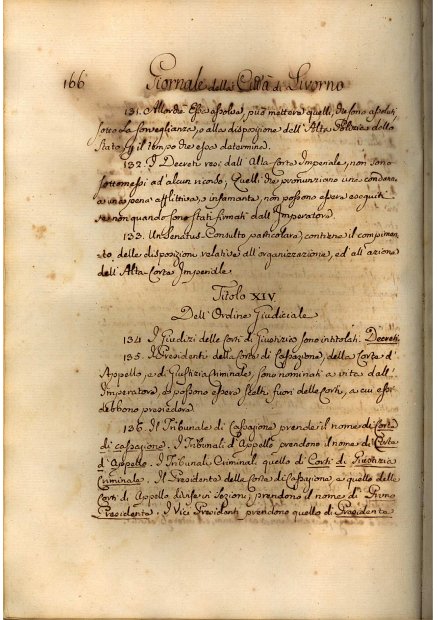 166 Giornale della Città di Livorno
131. Allorchè Essa assolve, può mettere quelli, che sono assoluti
sotto la sorveglianza, o alla disposizione dell'Alta Polizia dello
Stato il tempo che essa determina.
132. I Decreti resi dall'Alta Corte Imperiale, non sono
sottomessi ad alcun ricorso; Quelli che pronunziano una condanna
a una pena afflittiva, e infamante, non possono essere eseguiti
se non quando sono stati firmati dall'Imperatore.
133. Un Senatus-Consulto particolare, contiene il compimen-
to, delle disposizioni relative all'organizzazione, ed all'azione
dell'Alta Corte Imperiale.
Titolo XIV.
Dell'Ordine Giudiciale
134. I Giudizi delle Corti di Giustizia sono intitolati: Decreti.
135. I Presidenti della Corte di Cassazione, della Corte d'
Appello, e di Giustizia Criminale, sono nominati a vita dall'
Imperatore, e possono essere scelti fuori delle Corti, a cui essi
debbono presiedere.
136. Il Tribunale di Cassazione prende il nome di Corte
di Cassazione. I Tribunali d'Appello prendono il nome di Corte
d'Appello. I Tribunali Criminali quello di Corti di Giustizia
Criminale. Il Presidente della Corte di Cassazione, e quello delle
Corti di Appello divise in Sezioni, prendono il nome di Primo
Presidente. I Vice Presidenti prendono quello di Presidente